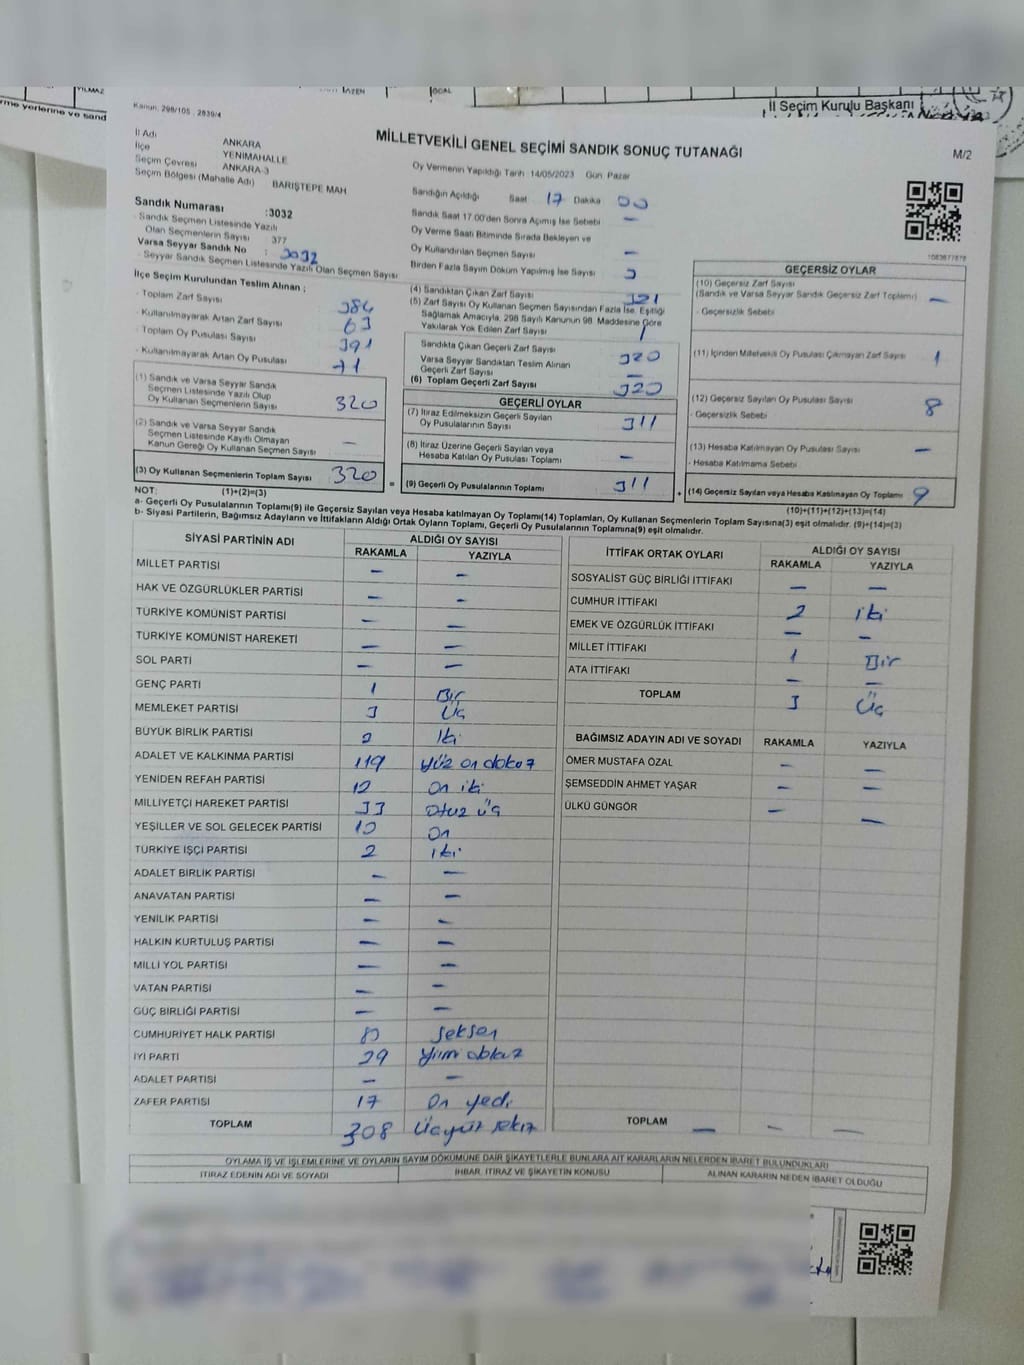 YILMAZ
İl Seçim Kurulu Başkanı
Kanun: 298/105 , 2839/4
MİLLETVEKİLİ GENEL SEÇİMİ SANDIK SONUÇ TUTANAĞI
M/2
İl Adı ANKARA
İlçe YENİMAHALLE
Seçim Çevresi ANKARA-3
Seçim Bölgesi (Mahalle Adı) BARIŞTEPE MAH
Sandık Numarası :3032
- Sandık Seçmen Listesinde Yazılı
Olan Seçmenlerin Sayısı 377
Varsa Seyyar Sandık No : 3032
- Seyyar Sandık Seçmen Listesinde Yazılı Olan Seçmen Sayısı
İlçe Seçim Kurulundan Teslim Alınan ;
- Toplam Zarf Sayısı 384
- Kullanılmayarak Artan Zarf Sayısı 63
- Toplam Oy Pusulası Sayısı 391
- Kullanılmayarak Artan Oy Pusulası 71
(1) Sandık ve Varsa Seyyar Sandık
Seçmen Listesinde Yazılı Olup
Oy Kullanan Seçmenlerin Sayısı 320
(2) Sandık ve Varsa Seyyar Sandık
Seçmen Listesinde Kayıtlı Olmayan
Kanun Gereği Oy Kullanan Seçmen Sayısı —
(3) Oy Kullanan Seçmenlerin Toplam Sayısı 320 =
Oy Vermenin Yapıldığı Tarih :14/05/2023 Gün: Pazar
Sandığın Açıldığı Saat 17 Dakika 00
Sandık Saat 17.00'den Sonra Açımış İse Sebebi —
Oy Verme Saati Bitiminde Sırada Bekleyen ve
Oy Kullandırılan Seçmen Sayısı —
Birden Fazla Sayım Döküm Yapılmış İse Sayısı
(4) Sandıktan Çıkan Zarf Sayısı 321
(5) Zarf Sayısı Oy Kullanan Seçmen Sayısından Fazla İse, Eşitliği
Sağlamak Amacıyla, 298 Sayılı Kanunun 98. Maddesine Göre
Yakılarak Yok Edilen Zarf Sayısı 1
Sandıkta Çıkan Geçerli Zarf Sayısı 320
Varsa Seyyar Sandıktan Teslim Alınan
Geçerli Zarf Sayısı —
(6) Toplam Geçerli Zarf Sayısı 320
GEÇERLİ OYLAR
(7) İtiraz Edilmeksizin Geçerli Sayılan
Oy Pusulalarının Sayısı 311
(8) İtiraz Üzerine Geçerli Sayılan veya
Hesaba Katılan Oy Pusulası Toplamı —
(9) Geçerli Oy Pusulalarının Toplamı 311 +
1083677878
GEÇERSİZ OYLAR
(10) Geçersiz Zarf Sayısı
(Sandık ve Varsa Seyyar Sandık Geçersiz Zarf Toplamı) —
- Geçersizlik Sebebi
(11) İçinden Milletvekili Oy Pusulası Çıkmayan Zarf Sayısı 1
(12) Geçersiz Sayılan Oy Pusulası Sayısı 8
- Geçersizlik Sebebi
(13) Hesaba Katılmayan Oy Pusulası Sayısı —
- Hesaba Katılmama Sebebi
(14) Geçersiz Sayılan veya Hesaba Katılmayan Oy Toplamı 9
NOT: (1)+(2)=(3) (10)+(11)+(12)+(13)=(14)
a- Geçerli Oy Pusulalarının Toplamı(9) ile Geçersiz Sayılan veya Hesaba katılmayan Oy Toplamı(14) Toplamları, Oy Kullanan Seçmenlerin Toplam Sayısına(3) eşit olmalıdır. (9)+(14)=(3)
b- Siyasi Partilerin, Bağımsız Adayların ve İttifakların Aldığı Ortak Oyların Toplamı, Geçerli Oy Pusulalarının Toplamına(9) eşit olmalıdır.
SİYASİ PARTİNİN ADI ALDIĞI OY SAYISI
RAKAMLA YAZIYLA
MİLLET PARTİSİ — —
HAK VE ÖZGÜRLÜKLER PARTİSİ — —
TÜRKİYE KOMÜNİST PARTİSİ — —
TÜRKİYE KOMÜNİST HAREKETİ — —
SOL PARTİ — —
GENÇ PARTİ 1 Bir
MEMLEKET PARTİSİ 3 Üç
BÜYÜK BİRLİK PARTİSİ 2 İki
ADALET VE KALKINMA PARTİSİ 119 yüz on dokoz
YENİDEN REFAH PARTİSİ 12 On iki
MİLLİYETÇİ HAREKET PARTİSİ 33 Otuz üç
YEŞİLLER VE SOL GELECEK PARTİSİ 10 On
TÜRKİYE İŞÇİ PARTİSİ 2 iki
ADALET BİRLİK PARTİSİ — —
ANAVATAN PARTİSİ — —
YENİLİK PARTİSİ — —
HALKIN KURTULUŞ PARTİSİ — —
MİLLİ YOL PARTİSİ — —
VATAN PARTİSİ — —
GÜÇ BİRLİĞİ PARTİSİ — —
CUMHURİYET HALK PARTİSİ 80 Seksen
İYİ PARTİ 29
ADALET PARTİSİ — —
ZAFER PARTİSİ 17 On yedi
TOPLAM 308 Üçyüz sekiz
İTTİFAK ORTAK OYLARI ALDIĞI OY SAYISI
RAKAMLA YAZIYLA
SOSYALİST GÜÇ BİRLİĞİ İTTİFAKI — —
CUMHUR İTTİFAKI 2 iki
EMEK VE ÖZGÜRLÜK İTTİFAKI — —
MİLLET İTTİFAKI 1 Bir
ATA İTTİFAKI — —
TOPLAM 3 Üç
BAĞIMSIZ ADAYIN ADI VE SOYADI RAKAMLA YAZIYLA
ÖMER MUSTAFA ÖZAL — —
ŞEMSEDDİN AHMET YAŞAR — —
ÜLKÜ GÜNGÖR — —
TOPLAM — — —
OYLAMA İŞ VE İŞLEMLERİNE VE OYLARIN SAYIM DÖKÜMÜNE DAİR ŞİKAYETLERLE BUNLARA AİT KARARLARIN NELERDEN İBARET BULUNDUKLARI
İTİRAZ EDENİN ADI VE SOYADI İHBAR, İTİRAZ VE ŞİKAYETİN KONUSU ALINAN KARARIN NEDEN İBARET OLDUĞU